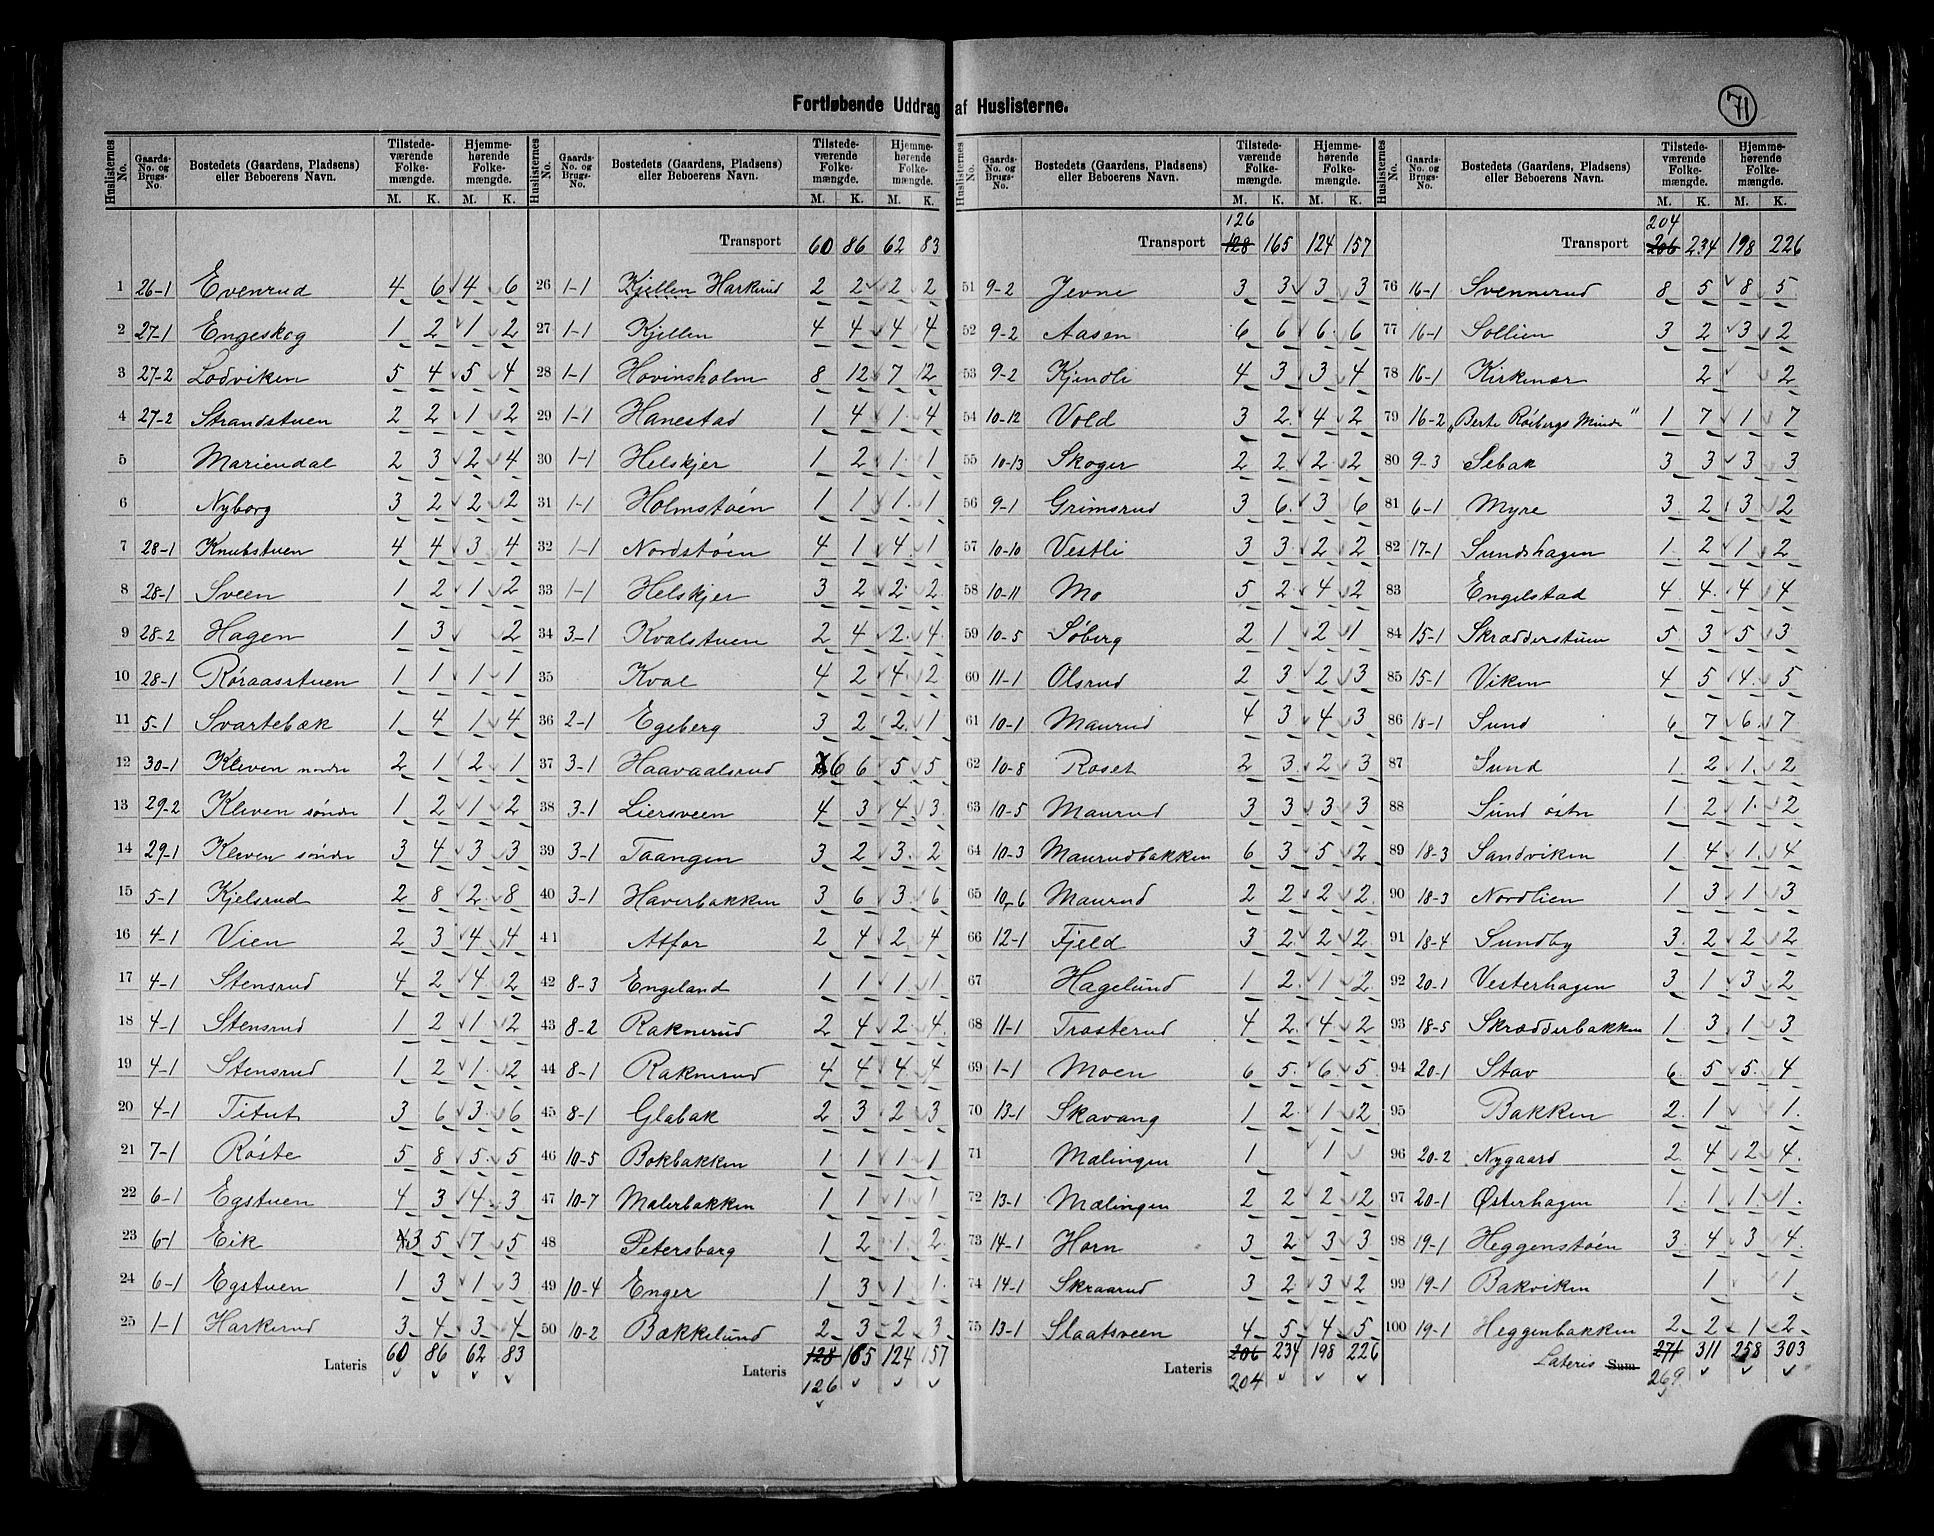 Fortløbende Uddrag af Huslisterne.
71
Huslisternes No. Gaards-No. og Brugs-No. Bostedets (Gaardens, Pladsens) eller Beboerens Navn. Tilstedeværende Folkemængde. M. K. Hjemmehørende Folkemængde. M. K.
1 26-1 Evenrud 4 6 4 6
2 27-1 Engeskog 1 2 1 2
3 27-2 Lodviken 5 4 5 4
4 27-2 Strandstuen 2 2 1 2
5 Mariendal 2 3 2 4
6 Nyborg 3 2 2 2
7 28-1 Knubstuen 4 4 3 4
8 28-1 Sveen 1 2 1 2
9 28-2 Hagen 1 3 2
10 28-1 Røraasstuen 1 1 1 1
11 5-1 Svartebæk 1 4 1 4
12 30-1 Kleven nordre 2 1 2 1
13 29-2 Kleven søndre 1 2 1 2
14 29-1 Kleven søndre 3 4 3 3
15 5-1 Kjelsrud 2 8 2 8
16 4-1 Vien 2 3 4 4
17 4-1 Stensrud 4 2 4 2
18 4-1 Stensrud 1 2 1 2
19 4-1 Stensrud 1 2 1 2
20 4-1 Titut 3 6 3 6
21 7-1 Røste 5 8 5 5
22 6-1 Egstuen 4 3 4 3
23 6-1 Eik 3 5 7 5
24 6-1 Egstuen 1 3 1 3
25 1-1 Harkerud 3 4 3 4
Lateris 60 86 62 83
Huslisternes No. Gaards-No. og Brugs-No. Bostedets (Gaardens, Pladsens) eller Beboerens Navn. Tilstedeværende Folkemængde. M. K. Hjemmehørende Folkemængde. M. K.
Transport 60 86 62 83
26 1-1 Kjellen Harkerud 2 2 2 2
27 1-1 Kjellen 4 4 4 4
28 1-1 Hovinsholm 8 12 7 12
29 1-1 Hanestad 1 4 1 4
30 1-1 Helskjer 1 2 1 1
31 1-1 Holmstøen 1 1 1 1
32 1-1 Nordstøen 4 1 4 1
33 1-1 Helskjer 3 2 2 2
34 3-1 Kvalstuen 2 4 2 4
35 Kval 4 2 4 2
36 2-1 Egeberg 3 2 2 1
37 3-1 Haavaalsrud 6 6 5 5
38 3-1 Liersveen 4 3 4 3
39 3-1 Taangen 3 2 3 2
40 3-1 Haverbakken 3 6 3 6
41 Atfor 2 4 2 4
42 8-3 Engeland 1 1 1 1
43 8-2 Raknerud 2 4 2 4
44 8-1 Raknerud 4 4 4 4
45 8-1 Glabak 2 3 2 3
46 10-5 Bokbakken 1 1 1 1
47 10-7 Malerbakken 1 1 1 1
48 Petersborg 1 2 1 2
49 10-4 Enger 1 3 1 1
50 10-2 Bækkelund 2 3 2 3
Lateris 128 165 124 157
126
Huslisternes No. Gaards-No. og Brugs-No. Bostedets (Gaardens, Pladsens) eller Beboerens Navn. Tilstedeværende Folkemængde. M. K. Hjemmehørende Folkemængde. M. K.
126
Transport 128 165 124 157
51 9-2 Jevne 3 3 3 3
52 9-2 Aasen 6 6 6 6
53 9-2 Kjendli 4 3 3 4
54 10-12 Vold 3 2 4 2
55 10-13 Skoger 2 2 2 2
56 9-1 Grimsrud 3 6 3 6
57 10-10 Vestli 3 3 2 2
58 10-11 Mo 5 2 4 2
59 10-5 Søberg 2 1 2 1
60 11-1 Olsrud 2 3 2 3
61 10-1 Maurud 4 3 4 3
62 10-8 Roset 2 3 2 3
63 10-5 Maurud 3 3 3 3
64 10-3 Maurudbakken 6 3 5 2
65 10-6 Maurud 2 2 2 2
66 12-1 Fjeld 3 2 2 2
67 Hagelund 1 2 1 2
68 11-1 Trosterud 4 2 4 2
69 1-1 Moen 6 5 6 5
70 13-1 Skavang 1 2 1 2
71 Mælingen 1 1
72 13-1 Mælingen 2 2 2 2
73 14-1 Horn 3 2 3 3
74 14-1 Skraarud 3 2 3 2
75 13-1 Slaatsveen 4 5 4 5
Lateris 206 234 198 226
204
Huslisternes No. Gaards-No. og Brugs-No. Bostedets (Gaardens, Pladsens) eller Beboerens Navn. Tilstedeværende Folkemængde. M. K. Hjemmehørende Folkemængde. M. K.
204
Transport 206 234 198 226
76 16-1 Svennerud 8 5 8 5
77 16-1 Sollien 3 2 3 2
78 16-1 Kirkenær 2 2
79 16-2 „Berte Röibergs Minde" 1 7 1 7
80 9-3 Sebak 3 3 3 3
81 6-1 Myre 3 2 3 2
82 17-1 Sundshagen 1 2 1 2
83 Engelstad 4 4 4 4
84 15-1 Skrædderstuen 5 3 5 3
85 15-1 Viken 4 5 4 5
86 18-1 Sund 6 7 6 7
87 Sund 1 2 1 2
88 Sund östre 1 2 1 2
89 18-3 Sandviken 1 4 1 4
90 18-3 Nordlien 1 3 1 3
91 18-4 Sundby 3 2 2 2
92 20-1 Vesterhagen 3 1 3 2
93 18-5 Skrædderbakken 1 3 1 3
94 20-1 Stav 6 5 5 4
95 Bakken 2 1 1
96 20-2 Nygaard 2 4 2 4
97 20-1 Østerhagen 1 1 1 1
98 19-1 Heggenstøen 3 4 3 4
99 19-1 Bakviken 1 1
100 19-1 Heggenbakken 2 2 1 2
Lateris Sum 271 311 258 303
269